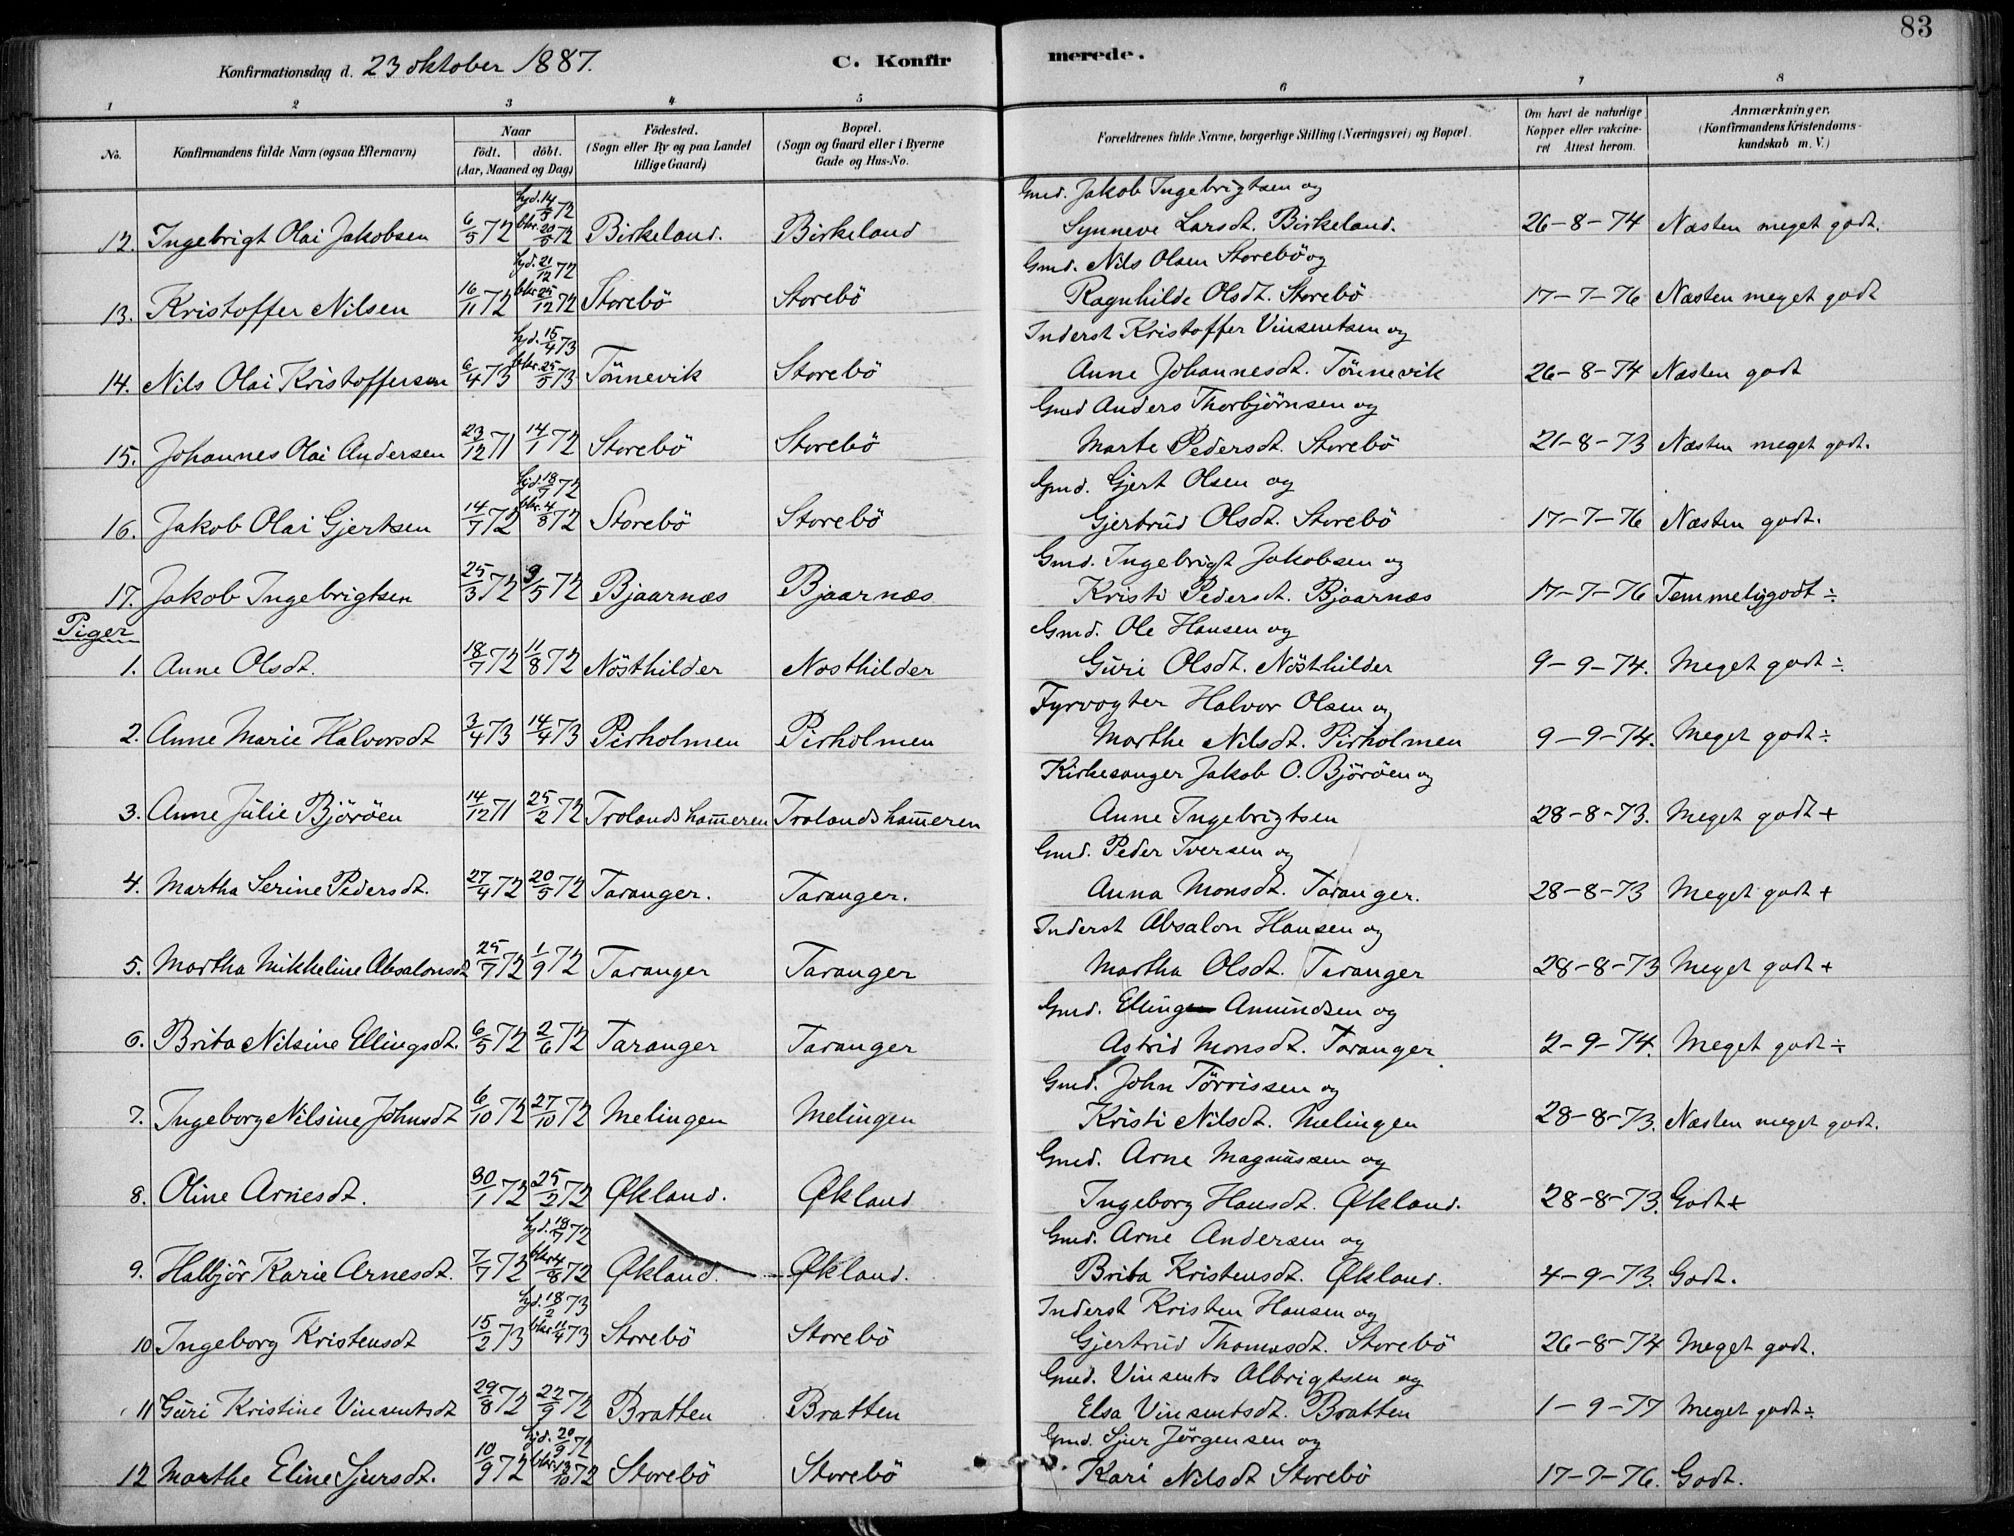 83
Konfirmationsdag d. 23 oktober 1887. C. Konfirmerede.
1 2 3 4 5 6 7 8
No. Konfirmandens fulde Navn (ogsaa Efternavn) Naar födt. döbt. (Aar, Maaned og Dag) Födested. (Sogn eller By og paa Landet tillige Gaard) Bopæl. (Sogn og Gaard eller i Byerne Gade og Hus-No. Forældrenes fulde Navne, borgerlige Stilling (Næringsvei) og Bopæl. Om havt de naturlige Kopper eller vakcineret Attest herom. Anmærkninger. (Konfirmandens Kristendomskundskab m. V.)
hjd. 14/5 72 Gmd. Jakob Ingebrigtsen og
12. Ingebrigt Olai Jakobsen 6/5 72 bkr. 20/5 72 Birkeland. Birkeland Synneve Larsdt. Birkeland. 26-8-74 Næsten meget godt.
hjd. 21/12 72 Gmd. Nils Olsen Storebö og
13. Kristoffer Nilsen 16/11 72 bkr 25/12 72 Storebö Storebö Ragnhilde Olsdt. Storebö 17-7-76 Næsten meget godt
hjd. 15/4 73 Inderst Kristoffer Vinsentsen og
14. Nils Olai Kristoffersen 6/4 73 bkr. 25/5 73 Tönnevik Storebö Anne Johannesdt. Tönnevik 26-8-74 Næsten godt
Gmd Anders Thorbjørnsen og
15. Johannes Olai Andersen 23/12 71 14/1 72 Storebö Storebö Marte Pedersdt. Storebö 21-8-73 Næsten meget godt.
hjd. 18/7 72 Gmd. Gjert Olsen og
16. Jakob Olai Gjertsen 14/7 72 bkr. 4/8 72 Storebö Storebö Gjertrud Olsdt. Storebö 17-7-76 Næsten godt.
Gmd. Ingebrigt Jakobsen og
17. Jakob Ingebrigtsen 25/3 72 9/5 72 Bjaarnæs Bjaarnæs Kristi Pedersdt. Bjaarnæs 17-7-76 Temmelig godt ÷
Piger Gmd. Ole Hansen og
1. Anne Olsdt. 18/7 72 11/8 72 Nösthilder Nosthilder Guri Olsdt. Nösthilder 9-9-74. Meget godt ÷
Fyrvogter Halvor Olsen og
2. Anne Marie Halvorsdt 3/4 73 14/4 73 Pirholmen Pirholmen Marthe Nilsdt. Pirholmen 9-9-74. Meget godt ÷
Kirkesanger Jakob O. Björöen og
3. Anne Julie Björöen 14/12 71 25/2 72 Trolandshammeren Trolandshammeren Anne Ingebrigtsen 28-8-73. Meget godt +
Gmd. Peder Iversen og
4. Martha Serine Pedersdt. 27/4 72 20/5 72 Taranger. Taranger. Anna Monsdt. Taranger. 28-8-73 Meget godt +
Inderst Absalon Hansen og
5. Martha Mikkeline Absalonsdt 25/7 72 1/9 72 Taranger Taranger Martha Olsdt. Taranger 28-8-73 Meget godt +
Gmd. Elling Amundsen og
6. Brita Nilsine Ellingsdt. 6/5 72 2/6 72 Taranger Taranger Astrid Monsdt. Taranger 2-9-74. Meget godt ÷
Gmd. John Törrissen og
7. Ingeborg Nilsine Johnsdt 6/10 72 27/10 72 Melingen Melingen Kristi Nilsdt. Melingen 28-8-73. Næsten meget godt.
Gmd. Arne Magnussen og
8. Oline Arnesdt. 30/1 72 25/2 72 Økland. Økland Ingeborg Hansdt. Økland. 28-8-73. Godt +
hjd. 18/7 72 Gmd. Arne Andersen og
9. Halbjör Karie Arnesdt. 7/7 72 bkr 4/8 72 Økland. Økland. Brita Kristensdt. Økland. 4-9-73. Godt.
hjd. 18/2 73 Inderst Kristen Hansen og
10 Ingeborg Kristensdt 15/2 73 bkr 11/4 73 Storebö Storebö Gjertrud Thomasdt. Storebö 26-8-74 Meget godt.
Gmd. Vinsents Albrigtsen og
11 Guri Kristine Vinsentsdt 29/8 72 22/9 72 Bratten Bratten Elsa Vinsentsdt. Bratten 1-9-77 Meget godt ÷
hjd. 20/9 72 Gmd. Sjur Jörgensen og
12 Marthe Eline Sjursdt. 10/9 72 bkr. 13/10 72 Storebö Storebö Kari Nilsdt Storebö 17-7-76. Godt.